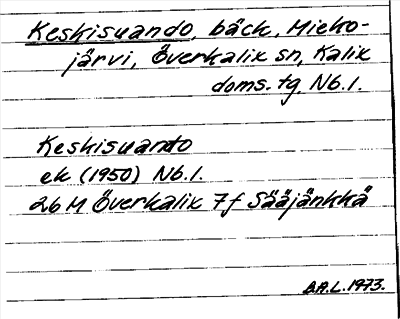 Keskisuando, bäck, Mieko-
järvi, Överkalix sn, Kalix
doms. tg. Nb.l.
Keskisuanto
ek (1950) Nb.l.
26 M Överkalix 7f Sääjänkkä
B.A.L. 1973.